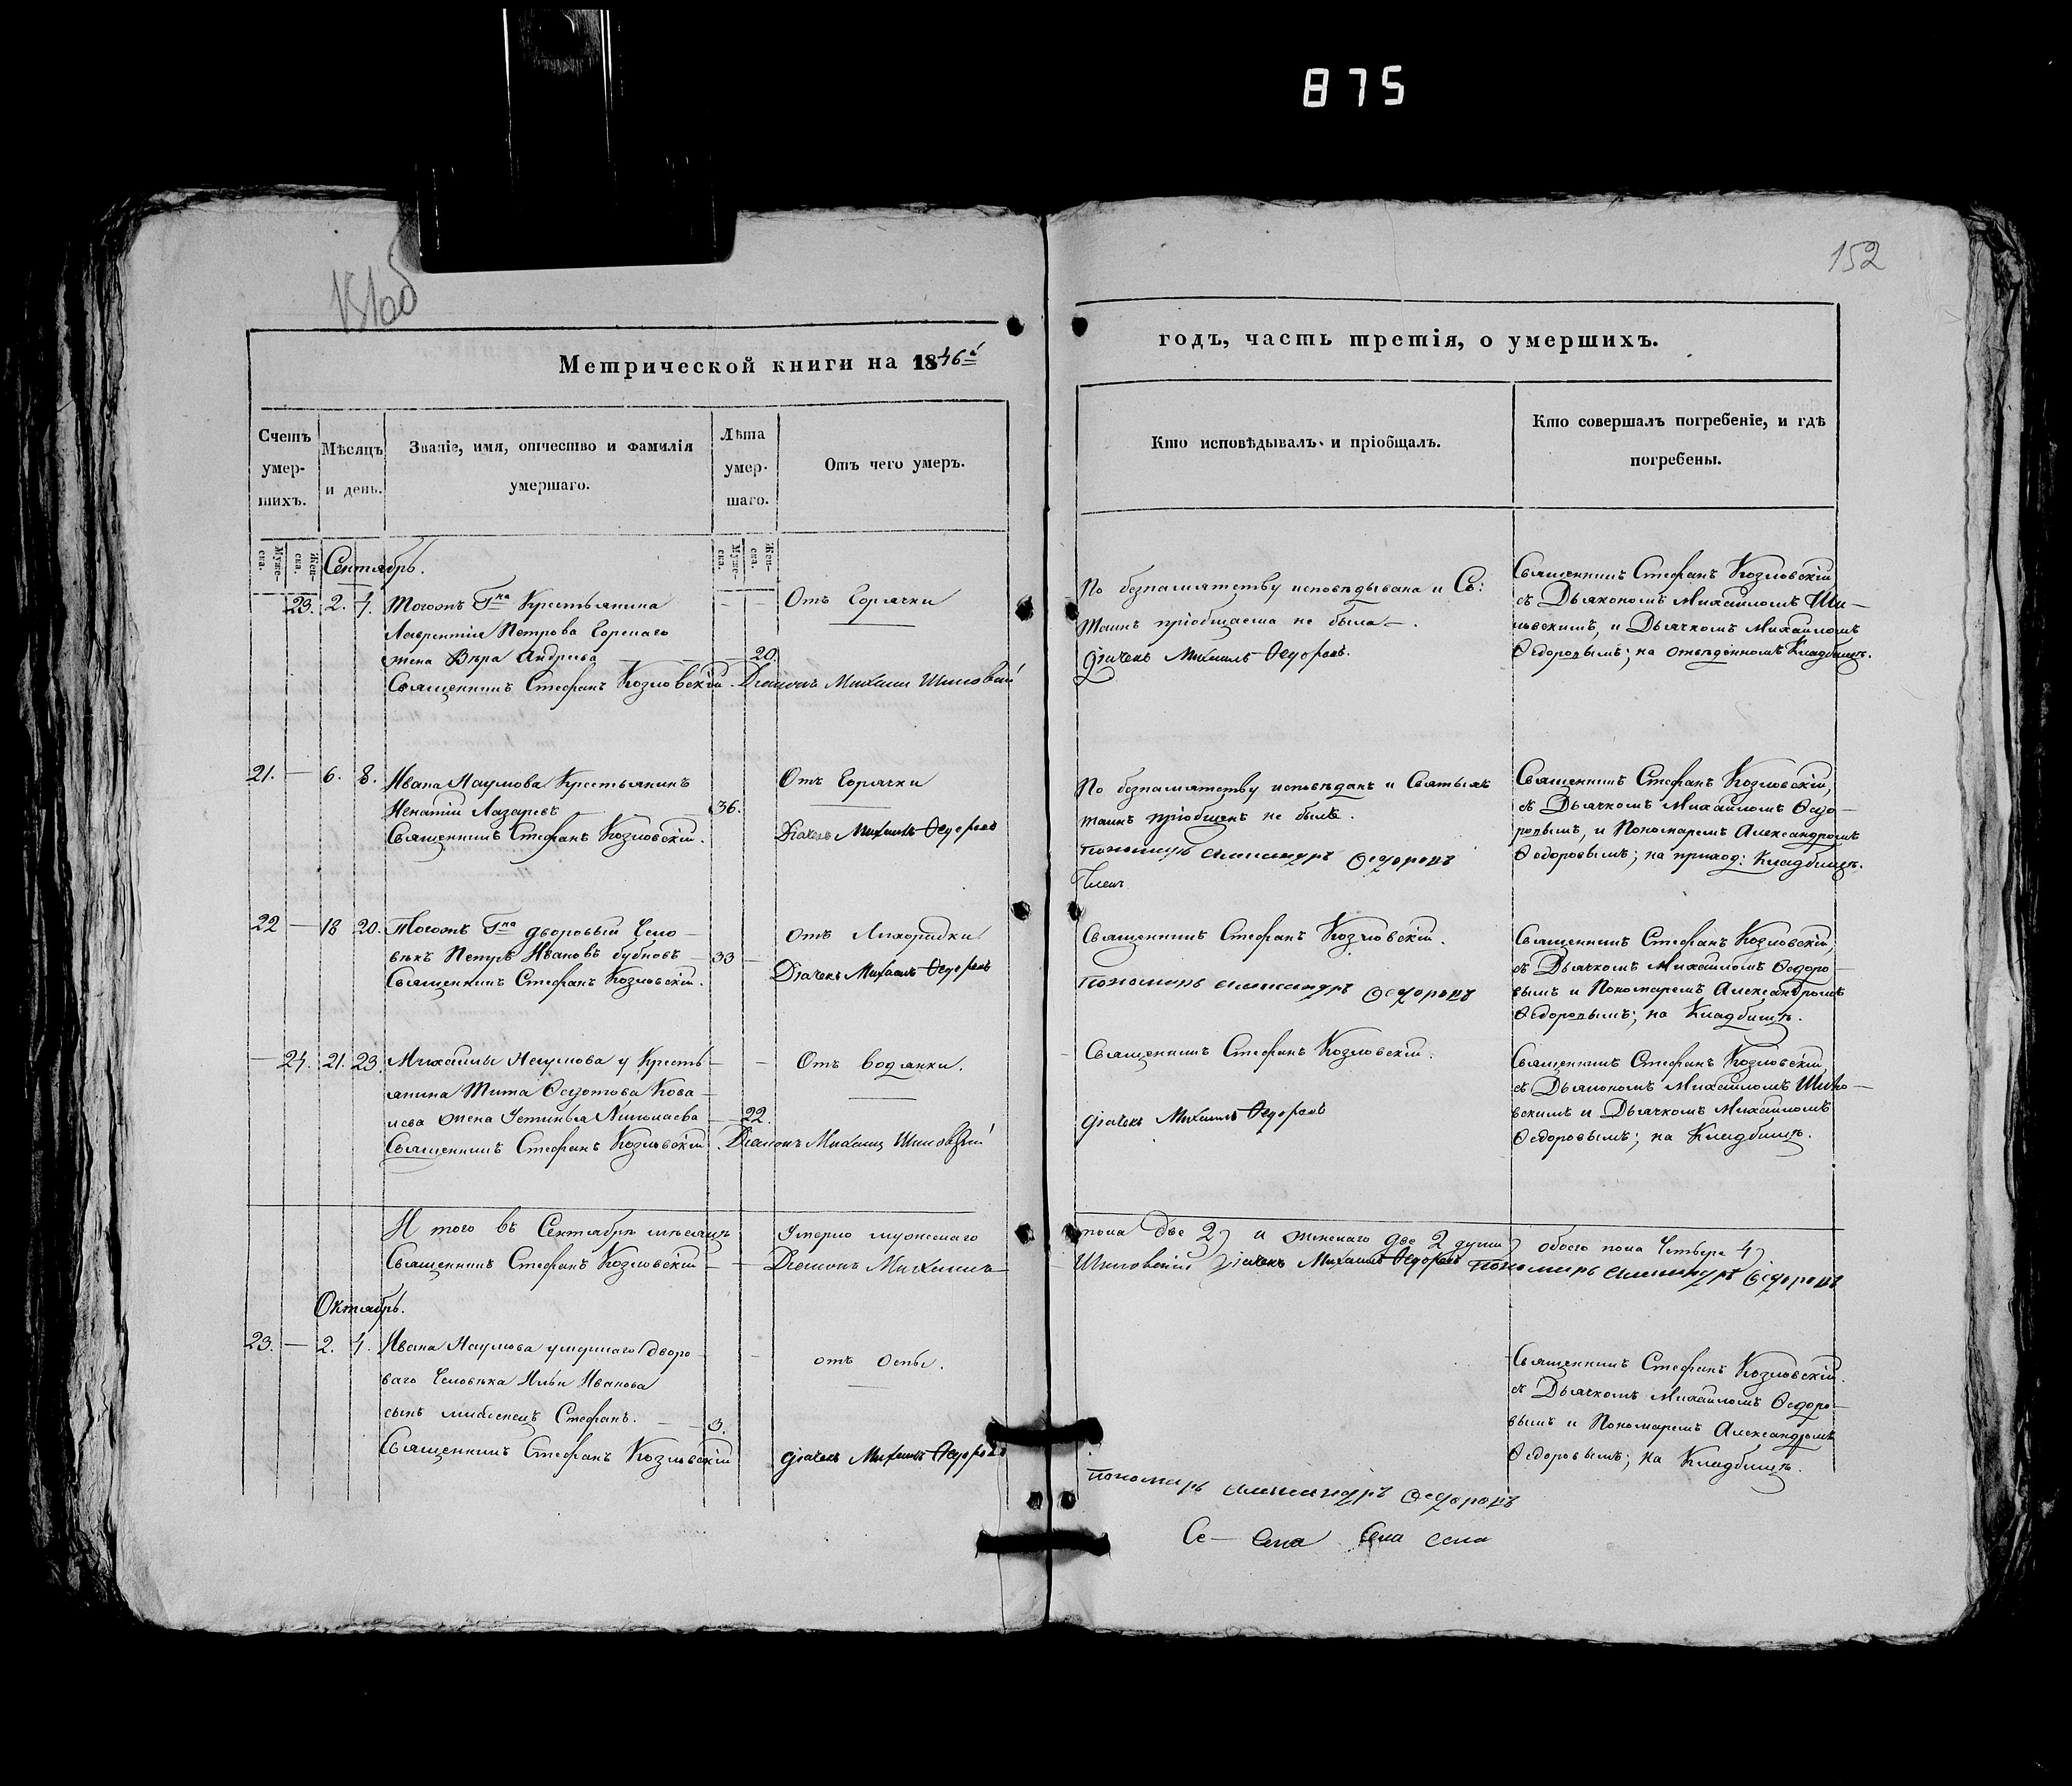 875
152
Метрической книги на 1846й
годъ, часть третія, о умершихъ.
Счетъ умершихъ.
Мѣсяцъ и день.
Званіе, имя, отчество и фамилія умершаго.
Лѣта умершаго.
Отъ чего умеръ.
Кто исповѣдывалъ и пріобщалъ.
Кто совершалъ погребеніе, и гдѣ погребены.
Муже-ска.
Жен-ска.
Муже-ска.
Жен-ска.
Сентябрь.
23. 2. 4. Тогожъ Гна Крестьянина
Лаврентія Петрова Горскаго
жена Вѣра Андреева — 20.
Отъ Горячки
Священникъ Стефанъ Козловскій. Діаконъ Михаилъ
По безпамятству исповѣдывана и Св:
Таинъ пріобщаема не была.
Діачекъ Михаилъ Ѳедоровъ.
Священникъ Стефанъ Козловскій
съ Дьякономъ Михаиломъ
и Дьячкомъ Михаиломъ
Ѳедоровымъ; на отведенномъ Кладбищѣ.
21. — 6. 8. Ивана Наумова Крестьянинъ
Игнатій Лазаревъ — 36.
Отъ Горячки
Священникъ Стефанъ Козловскій.
Діачекъ Михаилъ Ѳедоровъ
По безпамятству исповѣданъ и Святыхъ
таинъ пріобщенъ не былъ.
Пономарь Александръ Ѳедоровъ
Священникъ Стефанъ Козловскій,
съ Дьячкомъ Михаиломъ Ѳедо-
ровымъ, и Пономаремъ Александромъ
Ѳедоровымъ; на приход: Кладбищѣ.
22 — 18 20. Тогожъ Гна дворовый чело-
вѣкъ Петръ Ивановъ Бубновъ — 33 —
отъ Лихорадки
Священникъ Стефанъ Козловскій.
Діачекъ Михаилъ Ѳедоровъ
Священникъ Стефанъ Козловскій.
Пономарь Александръ Ѳедоровъ
Священникъ Стефанъ Козловскій,
съ Дьячкомъ Михаиломъ Ѳедоро-
вымъ и Пономаремъ Александромъ
Ѳедоровымъ; на Кладбищѣ.
— 24. 21. 23 Михаилы Наумова у Кресть-
янина Тита Ѳедотова Кова-
лева жена Устинья Николаева — 22.
Отъ водянки.
Священникъ Стефанъ Козловскій. Діаконъ Михаилъ
Священникъ Стефанъ Козловскій.
Діачекъ Михаилъ Ѳедоровъ
Священникъ Стефанъ Козловскій
съ Дьякономъ Михаиломъ
и Дьячкомъ Михаиломъ
Ѳедоровымъ; на Кладбищѣ.
И того въ Сентябрѣ мѣсяцѣ Умерло мужескаго
пола две 2, а женскаго две 2 души, обоего пола четыре 4,
Священникъ Стефанъ Козловскій — Діаконъ Михаилъ
Діачекъ Михаилъ Ѳедоровъ Пономарь Александръ Ѳедоровъ
Октябрь.
23. — 2. 4. Ивана Наумова умершаго дворо-
ваго Человѣка Ильи Иванова
сынъ младенецъ Стефанъ. — 3.
отъ оспы.
Священникъ Стефанъ Козловскій
Діачекъ Михаилъ Ѳедоровъ
Пономарь Александръ Ѳедоровъ
Священникъ Стефанъ Козловскій.
съ Дьячкомъ Михаиломъ Ѳедоро-
вымъ и Пономаремъ Александромъ
Ѳедоровымъ; на Кладбищѣ.
Се— Села Села села